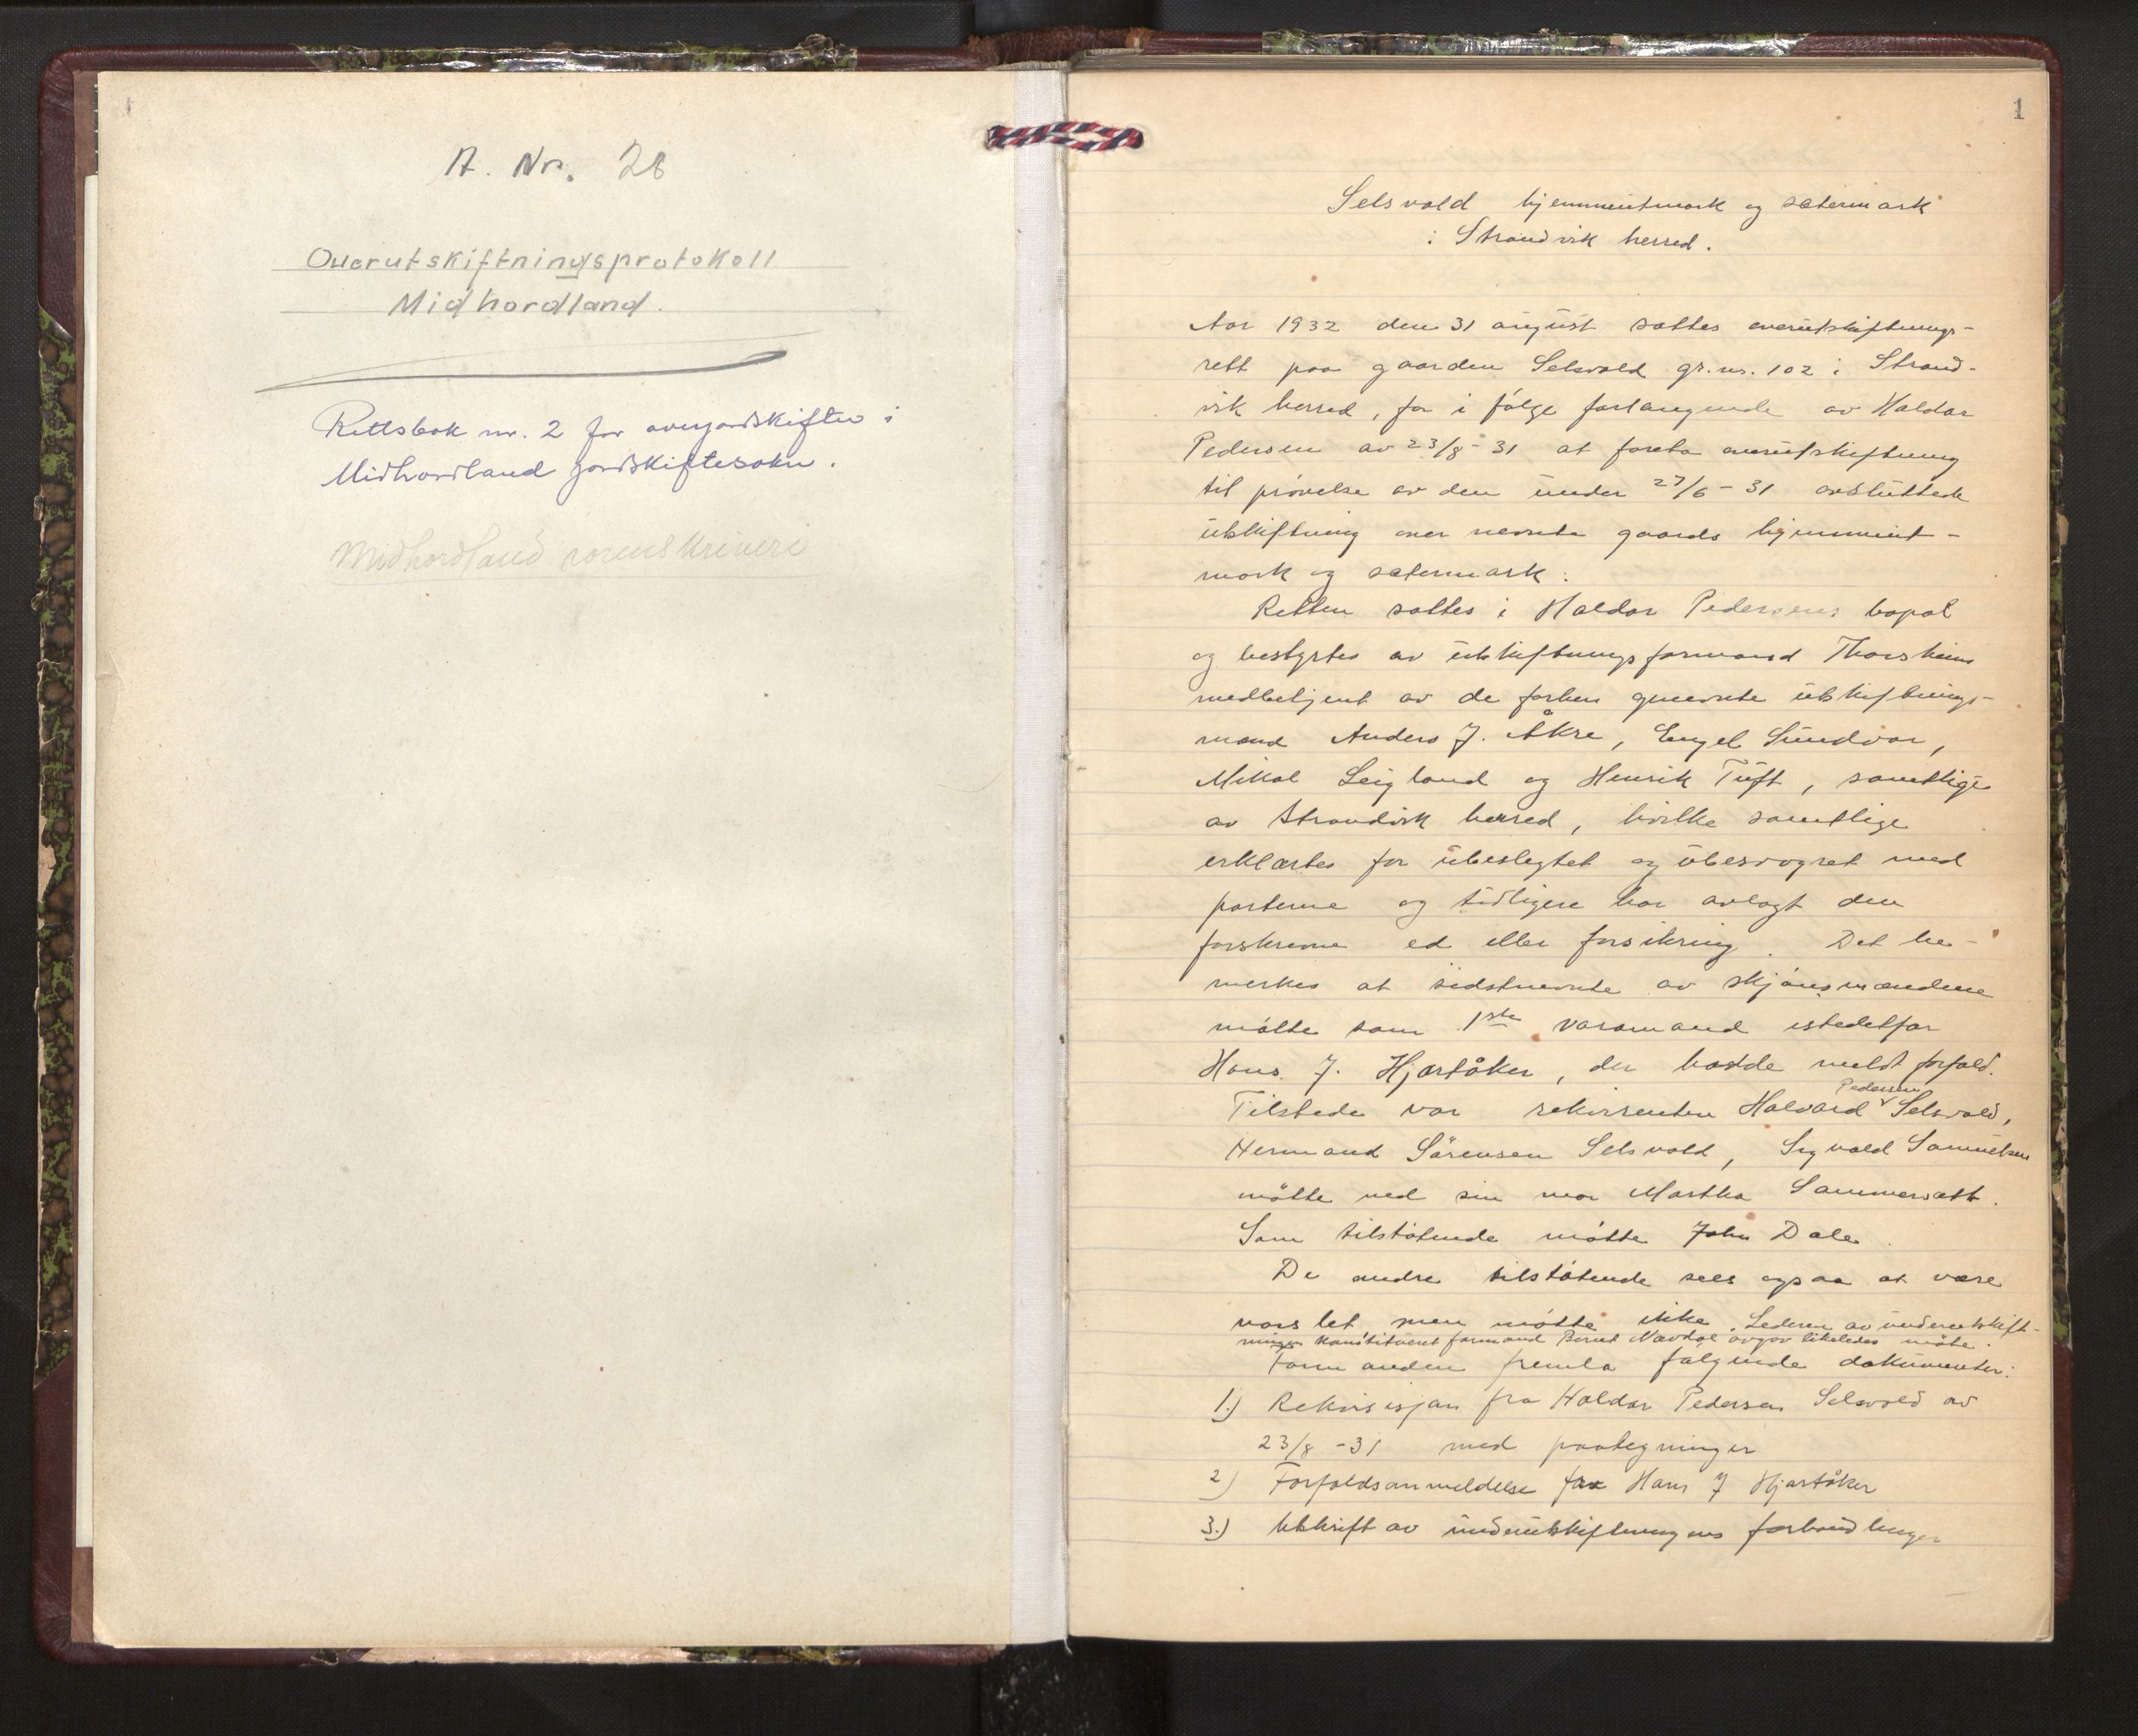 A. Nr. 28
Overutskiftningsprotokoll
Midhordland.
Rettsbok nr. 2 for overjordskifter i
Midhordland jordskiftesokn.
Midhordland sorenskriveri
1
Selsvold hjemmeutmark og sætermark
i Strandvik herred.
Aar 1932 den 31 august sattes overutskiftnings-
rett paa gaarden Selsvold gr. nr. 102 i Strand-
vik herred, for i følge forlangende av Haldor
Pedersen av 23/8 - 31 at foreta overutskiftning
til prøvelse av den under 27/6 - 31 avsluttede
utskiftning over nevnte gaards hjemmeut-
mark og sætermark:
Retten sattes i Haldor Pedersens bopæl
og bestyrtes av utskiftningsformand Thorsheim
medbetjent av de forhen opnevnte utskiftnings-
mænd Anders J. Åkre, Engel Sundvor,
Mikal Leigland og Henrik Tuft, samtlige
av Strandvik herred, hvilke samtlige
erklærtes for ubeslegtet og ubesvogret med
parterne og tidligere har avlagt den
forskrevne ed eller forsikring. Det be-
merkes at sidstnevnte av skjønsmændene
møtte som 1ste varamand istedetfor
Hans J. Hjartåker, der hadde meldt forfald.
Tilstede var rekvirenten Halvard Pedersen Selsvold,
Hermand Sørensen Selsvold, Sigvald Samuelsen
møtte ved sin mor Martha Sammersæth.
Som tilstøtende møtte John Dale.
De andre tilstøtende sees ogsaa at være
varslet men møtte ikke. Lederen av underutskift-
ningen konstitueret formand Bernt Nævdal avgav likeledes møte.
Formanden fremla følgende dokumenter:
1.) Rekvisisjon fra Haldor Pedersen Selsvold av
23/8 - 31 med paategninger
2) Forfaldsanmeldelse fra Hans J Hjartåker
3.) Utskrift av underutskiftningens forhandlinger